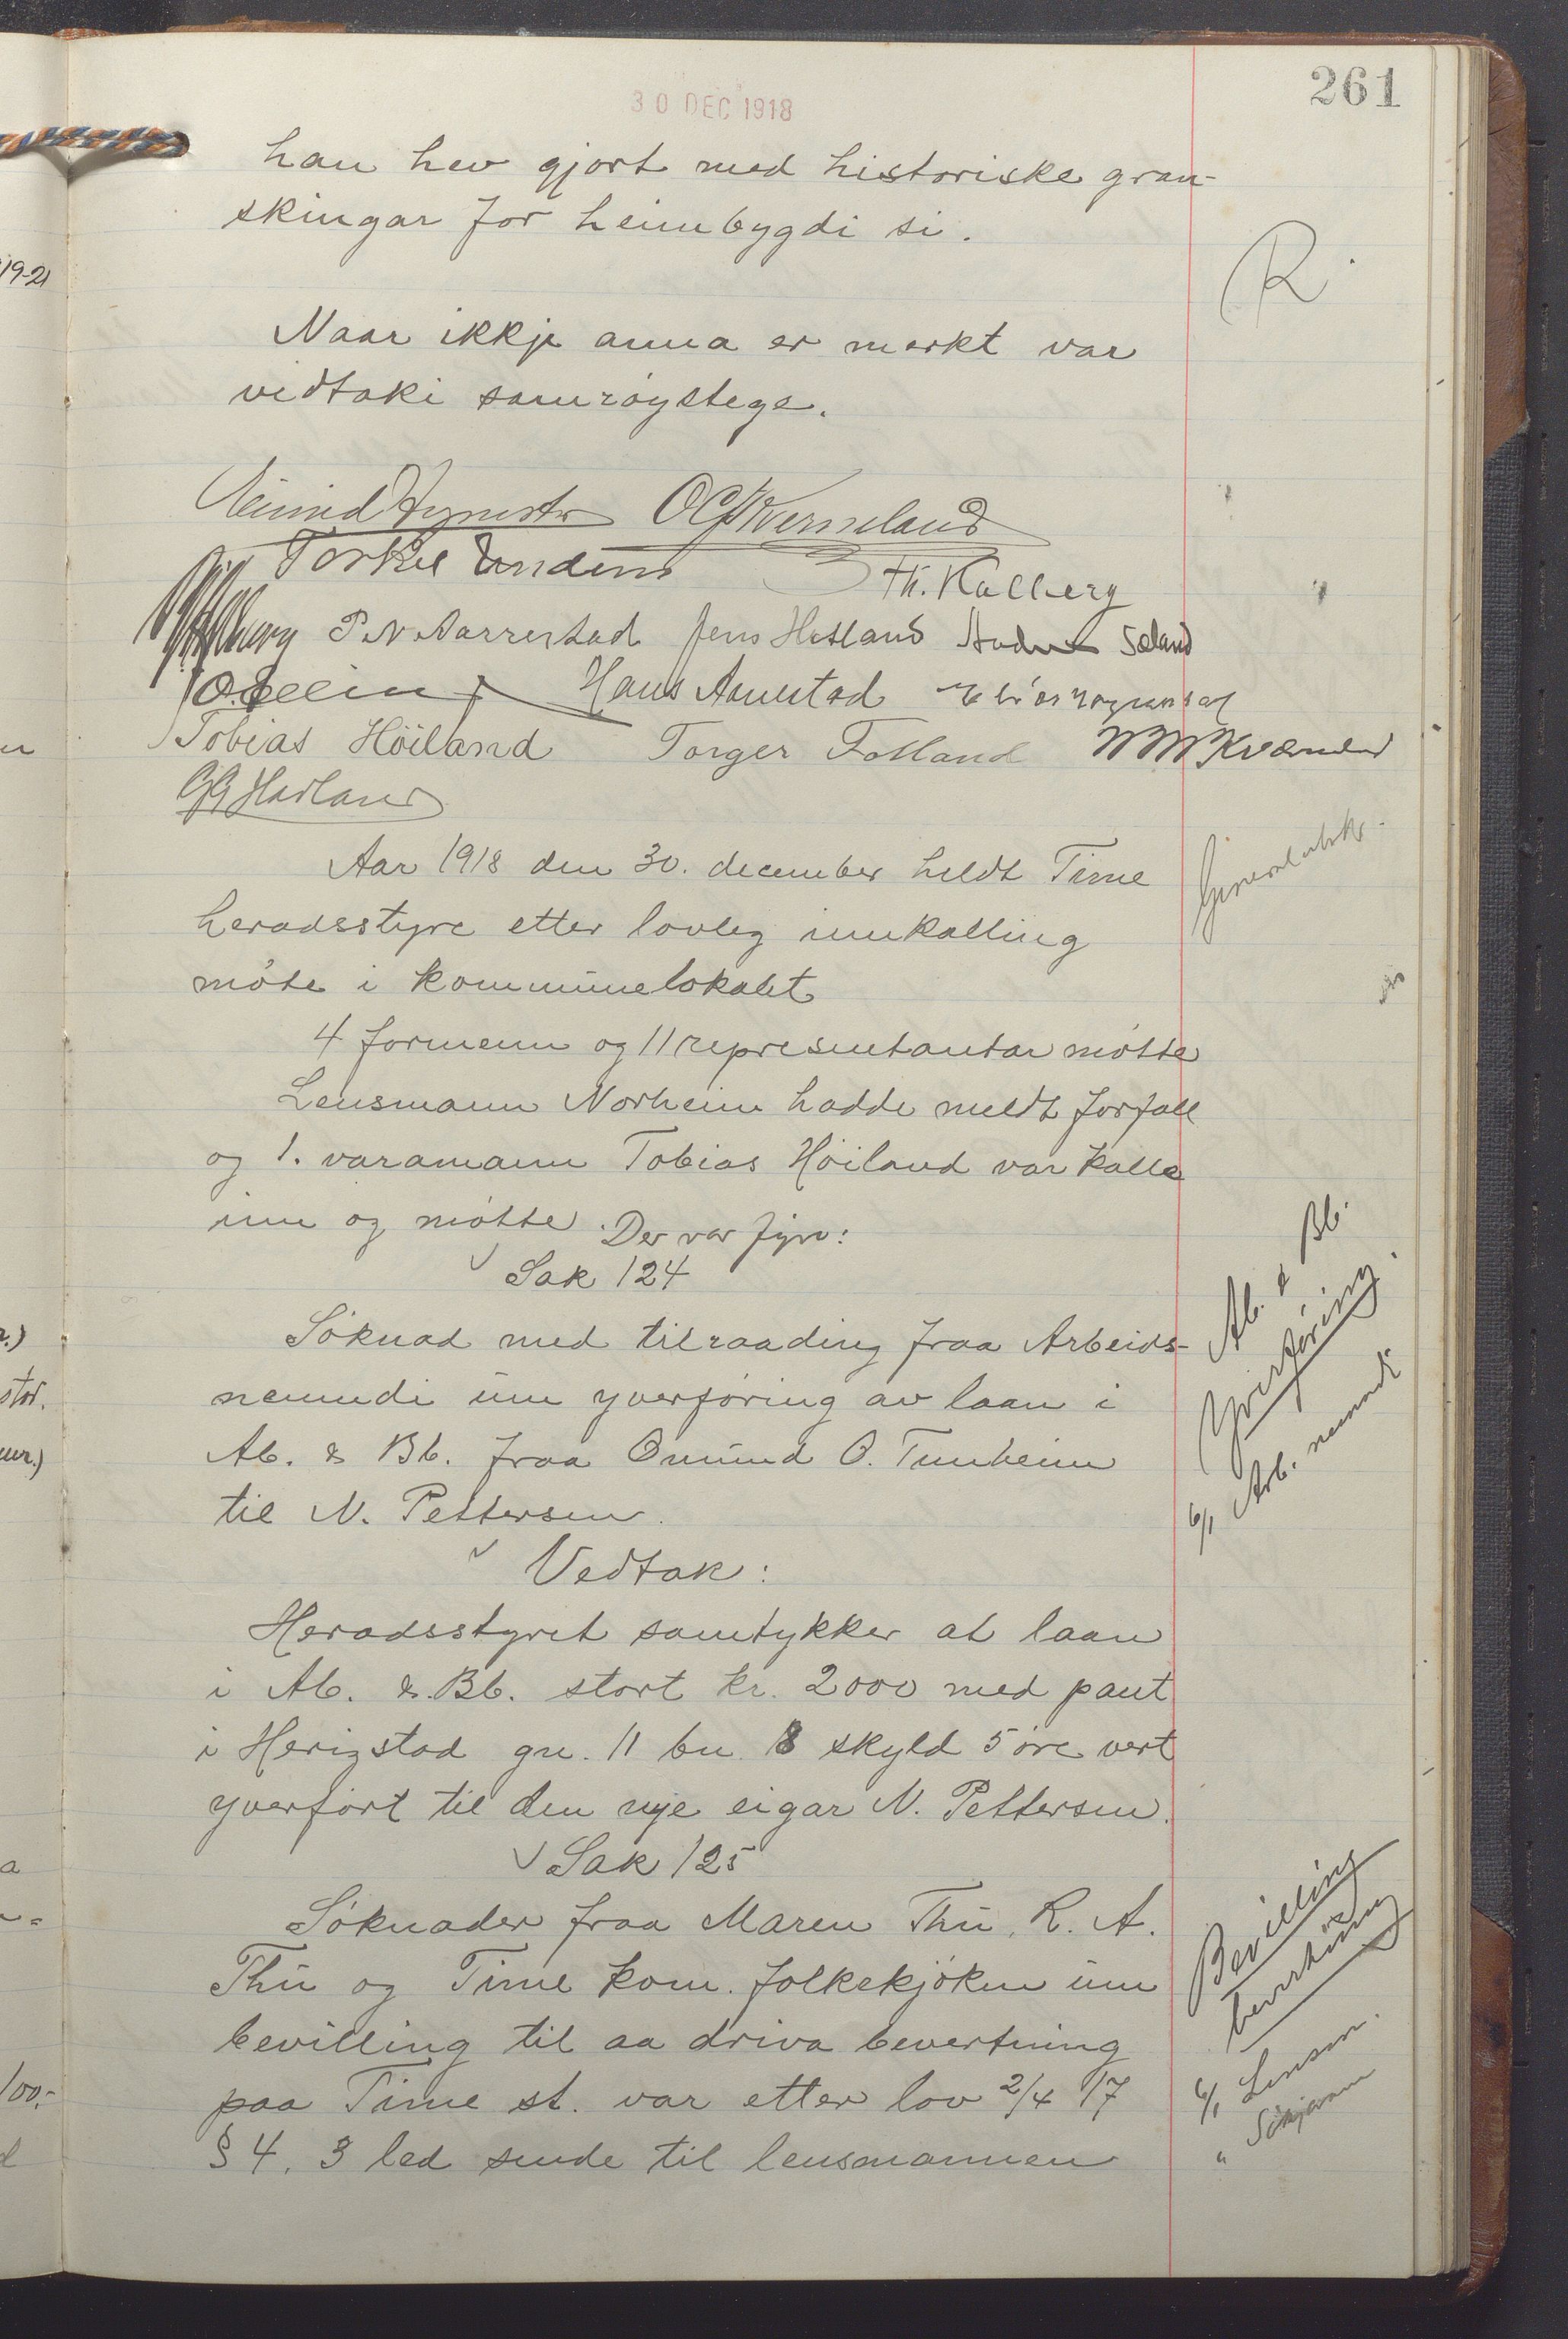 261
30 DEC 1918
han hev gjort med historiske gran-
skingar for heimbygdi si.
R.
Naar ikkje anna er merkt var
vedtaki samrøystege.
O. G. Kverneland
Torkel
Th. Kalberg
P. N. Aarrestad Jens Hetland Andreas Sæland
Hans Aanestad
Tobias Höiland Torger Fotland Kverneland
Aar 1918 den 30. december heldt Time
heradsstyre etter lovleg innkalling
møte i kommunelokalet
4 formenn og 11 representantar møtte
Lensmann Norheim hadde meldt forfall
og 1. varamann Tobias Höiland var kalla
inn og møtte. Der var fyre:
Sak 124
Søknad med tilraading fraa Arbeids-
nemndi um yverføring av laan i
Ab. & Bb. fraa Omund O. Tunheim
til N. Pettersen.
Ab. & Bb.
Yverføring
6/1 Arb. nemndi
Vedtak:
Heradsstyret samtykker at laan
i Ab. & Bb. stort kr. 2000 med pant
i Herigstad gn. 11 bn. 8 skyld 5 øre vert
yverført til den nye eigar N. Pettersen.
Sak 125
Søknader fraa Maren Thu, R. A.
Thu og Time kom. folkekjøken um
bevilling til aa driva bevertning
paa Time st. var etter lov 2/4 17
§ 4. 3 led sende til lensmannen
Bevilling
bevertning
6/1 Lensm.
"